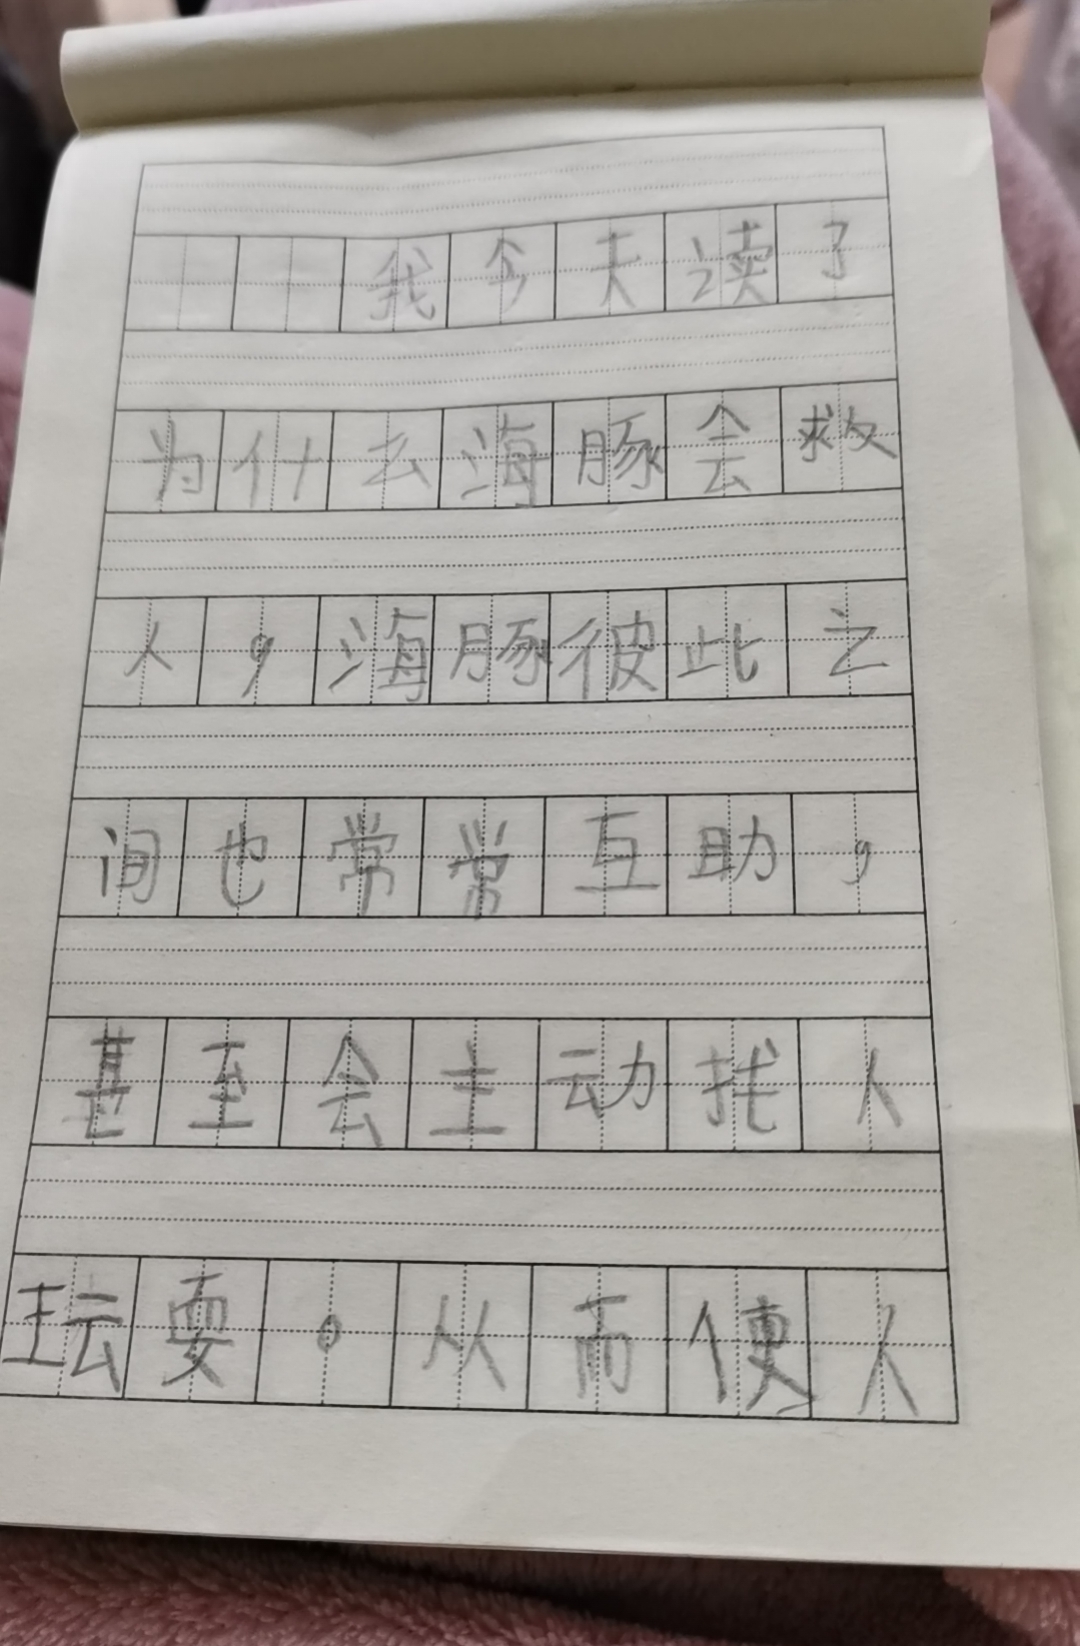 我今天读了
为什么海豚会救
人，海豚彼此之
间也常常互助，
甚至会主动找人
玩耍。从而使人